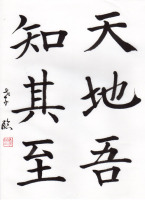 天地吾
知其至
臨